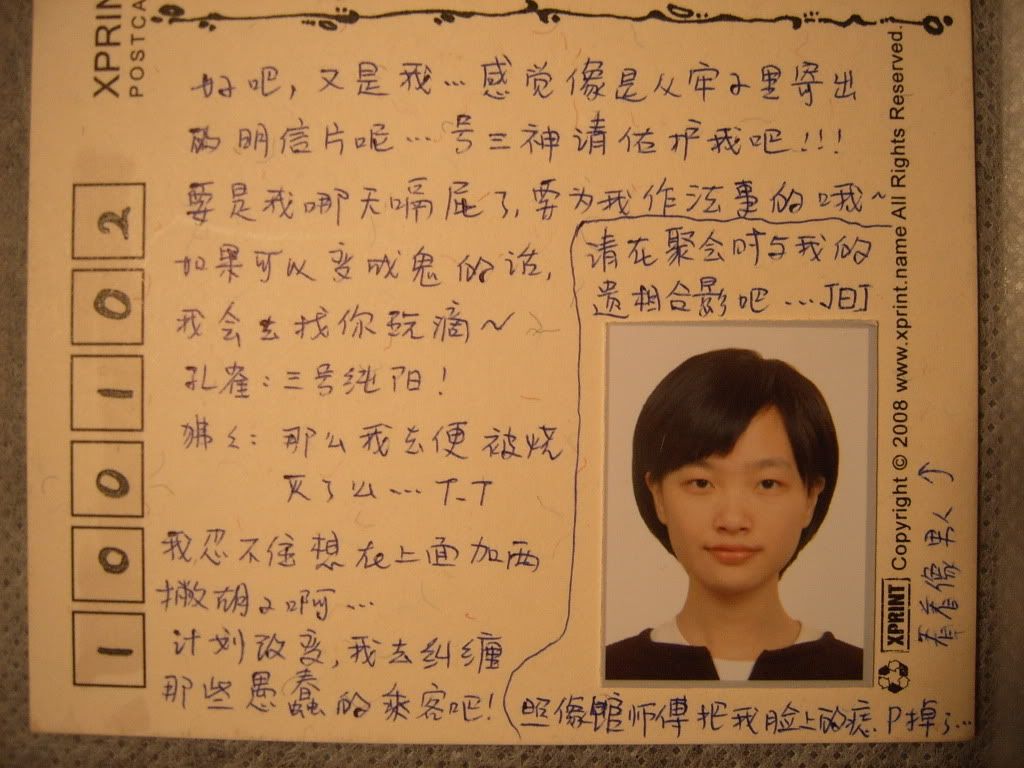 XPRIN
POSTCA
好吧，又是我…感觉像是从牢子里寄出
的明信片呢…号三神请佑护我吧!!!
要是我哪天嗝屁了，要为我作法事的哦~
如果可以变成鬼的话，
我会去找你玩滴~
孔雀：三号纯阳！
狒々：那么我去便被烧
灭了么…T_T
我忍不住想在上面加两
撇胡子啊…
计划改变，我去纠缠
那些愚蠢的乘客吧！
请在聚会时与我的
遗相合影吧…
照像馆师傅把我脸上的痣P掉了…
看着像男人
XPRINT Copyright © 2008 www.xprint.name All Rights Reserved.
1 0 0 1 0 2